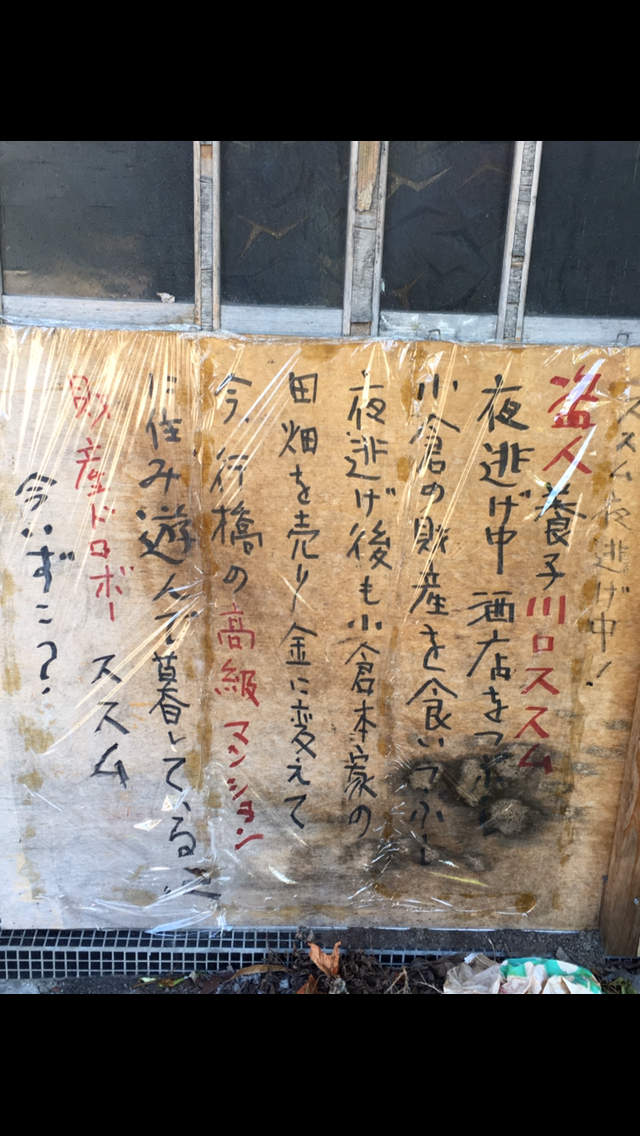 ススム夜逃げ中!
盗人養子川口ススム
夜逃げ中 酒店をつぶし
小倉の財産を食いつぶし
夜逃げ後も小倉本家の
田畑を売り金に変えて
今、行橋の高級マンション
に住み遊んで暮している
財産ドロボー ススム
今いずこ?